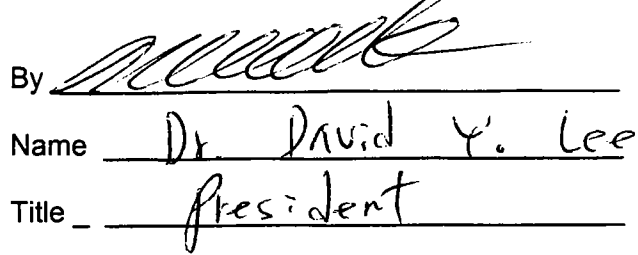 By
Name Dr. David Y. Lee
Title President